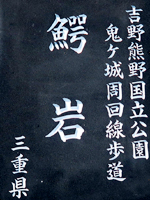 吉野熊野国立公園
鬼ケ城周回線歩道
鰐岩
三重県